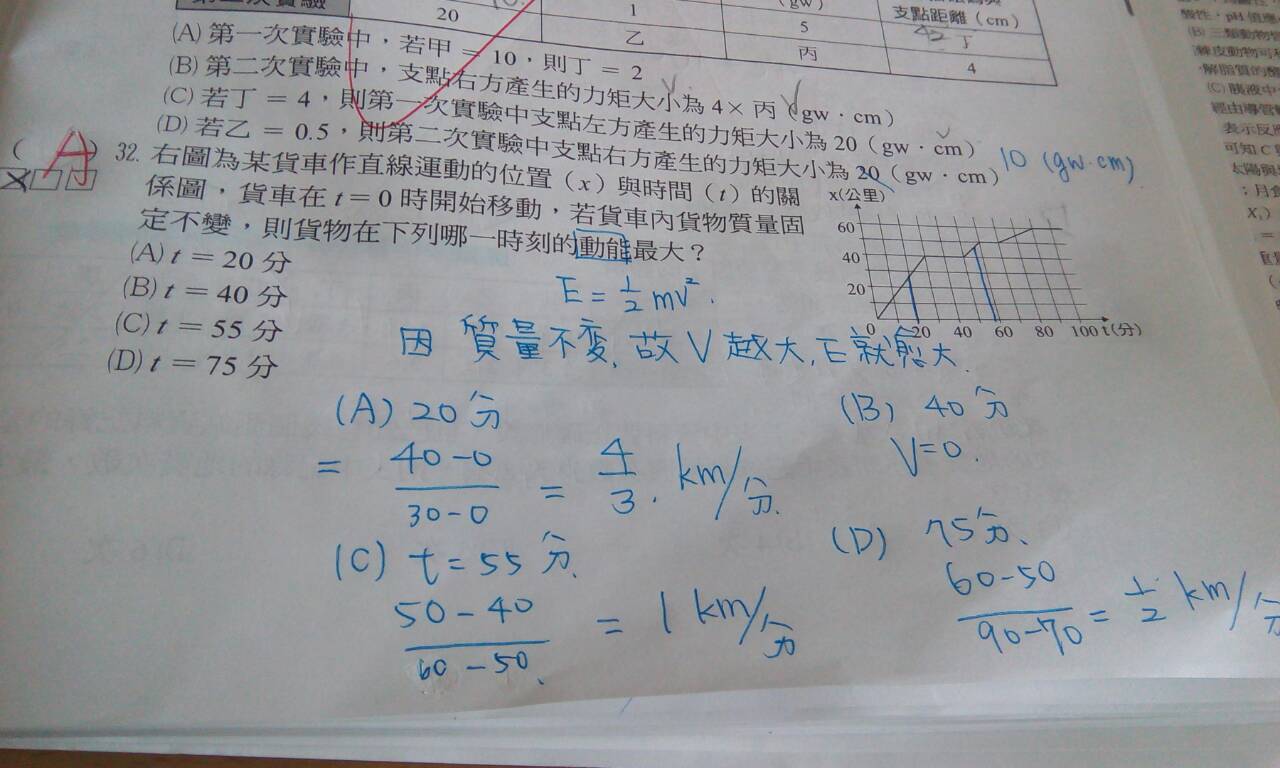 第二次實驗
20
1
乙
(gw)
5
丙
支點距離(cm)
丁
4
(A) 第一次實驗中,若甲=10,則丁=2
(B) 第二次實驗中,支點右方產生的力矩大小為 4×丙(gw.cm)
(C) 若丁=4,則第一次實驗中支點左方產生的力矩大小為 20(gw.cm)
(D) 若乙=0.5,則第二次實驗中支點右方產生的力矩大小為 20(gw.cm)
10 (gw.cm)
( A ) 32. 右圖為某貨車作直線運動的位置(x)與時間(t)的關
係圖,貨車在 t=0 時開始移動,若貨車內貨物質量固
定不變,則貨物在下列哪一時刻的動能最大?
(A) t=20 分
(B) t=40 分
(C) t=55 分
(D) t=75 分
x(公里)
60
40
20
0 20 40 60 80 100 t(分)
E=1/2 mv².
因質量不變,故V越大,E就愈大.
(A) 20分
= 40-0/30-0 = 4/3. km/分.
(B) 40分
V=0.
(C) t=55分.
50-40/60-50. = 1 km/分
(D) 75分.
60-50/90-70 = 1/2 km/分
酸性,pH值應
(B) 三類動物
解脂質的
(C) 胰液中
經由導管
表示反
可知C
太陽與